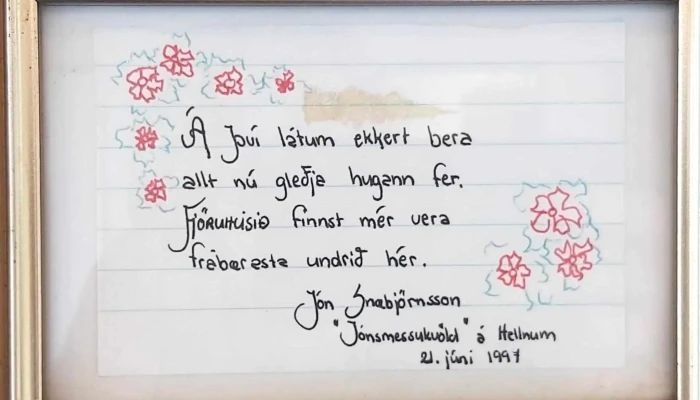 Á því látum ekkert bera
allt nú gleðja hugann fer.
FJÖRUHÚSIÐ finnst mér vera
frábærasta undrið hér.
Jón Snæbjörnsson
"Jónsmessukvöld" á Hellnum
21. júní 1997